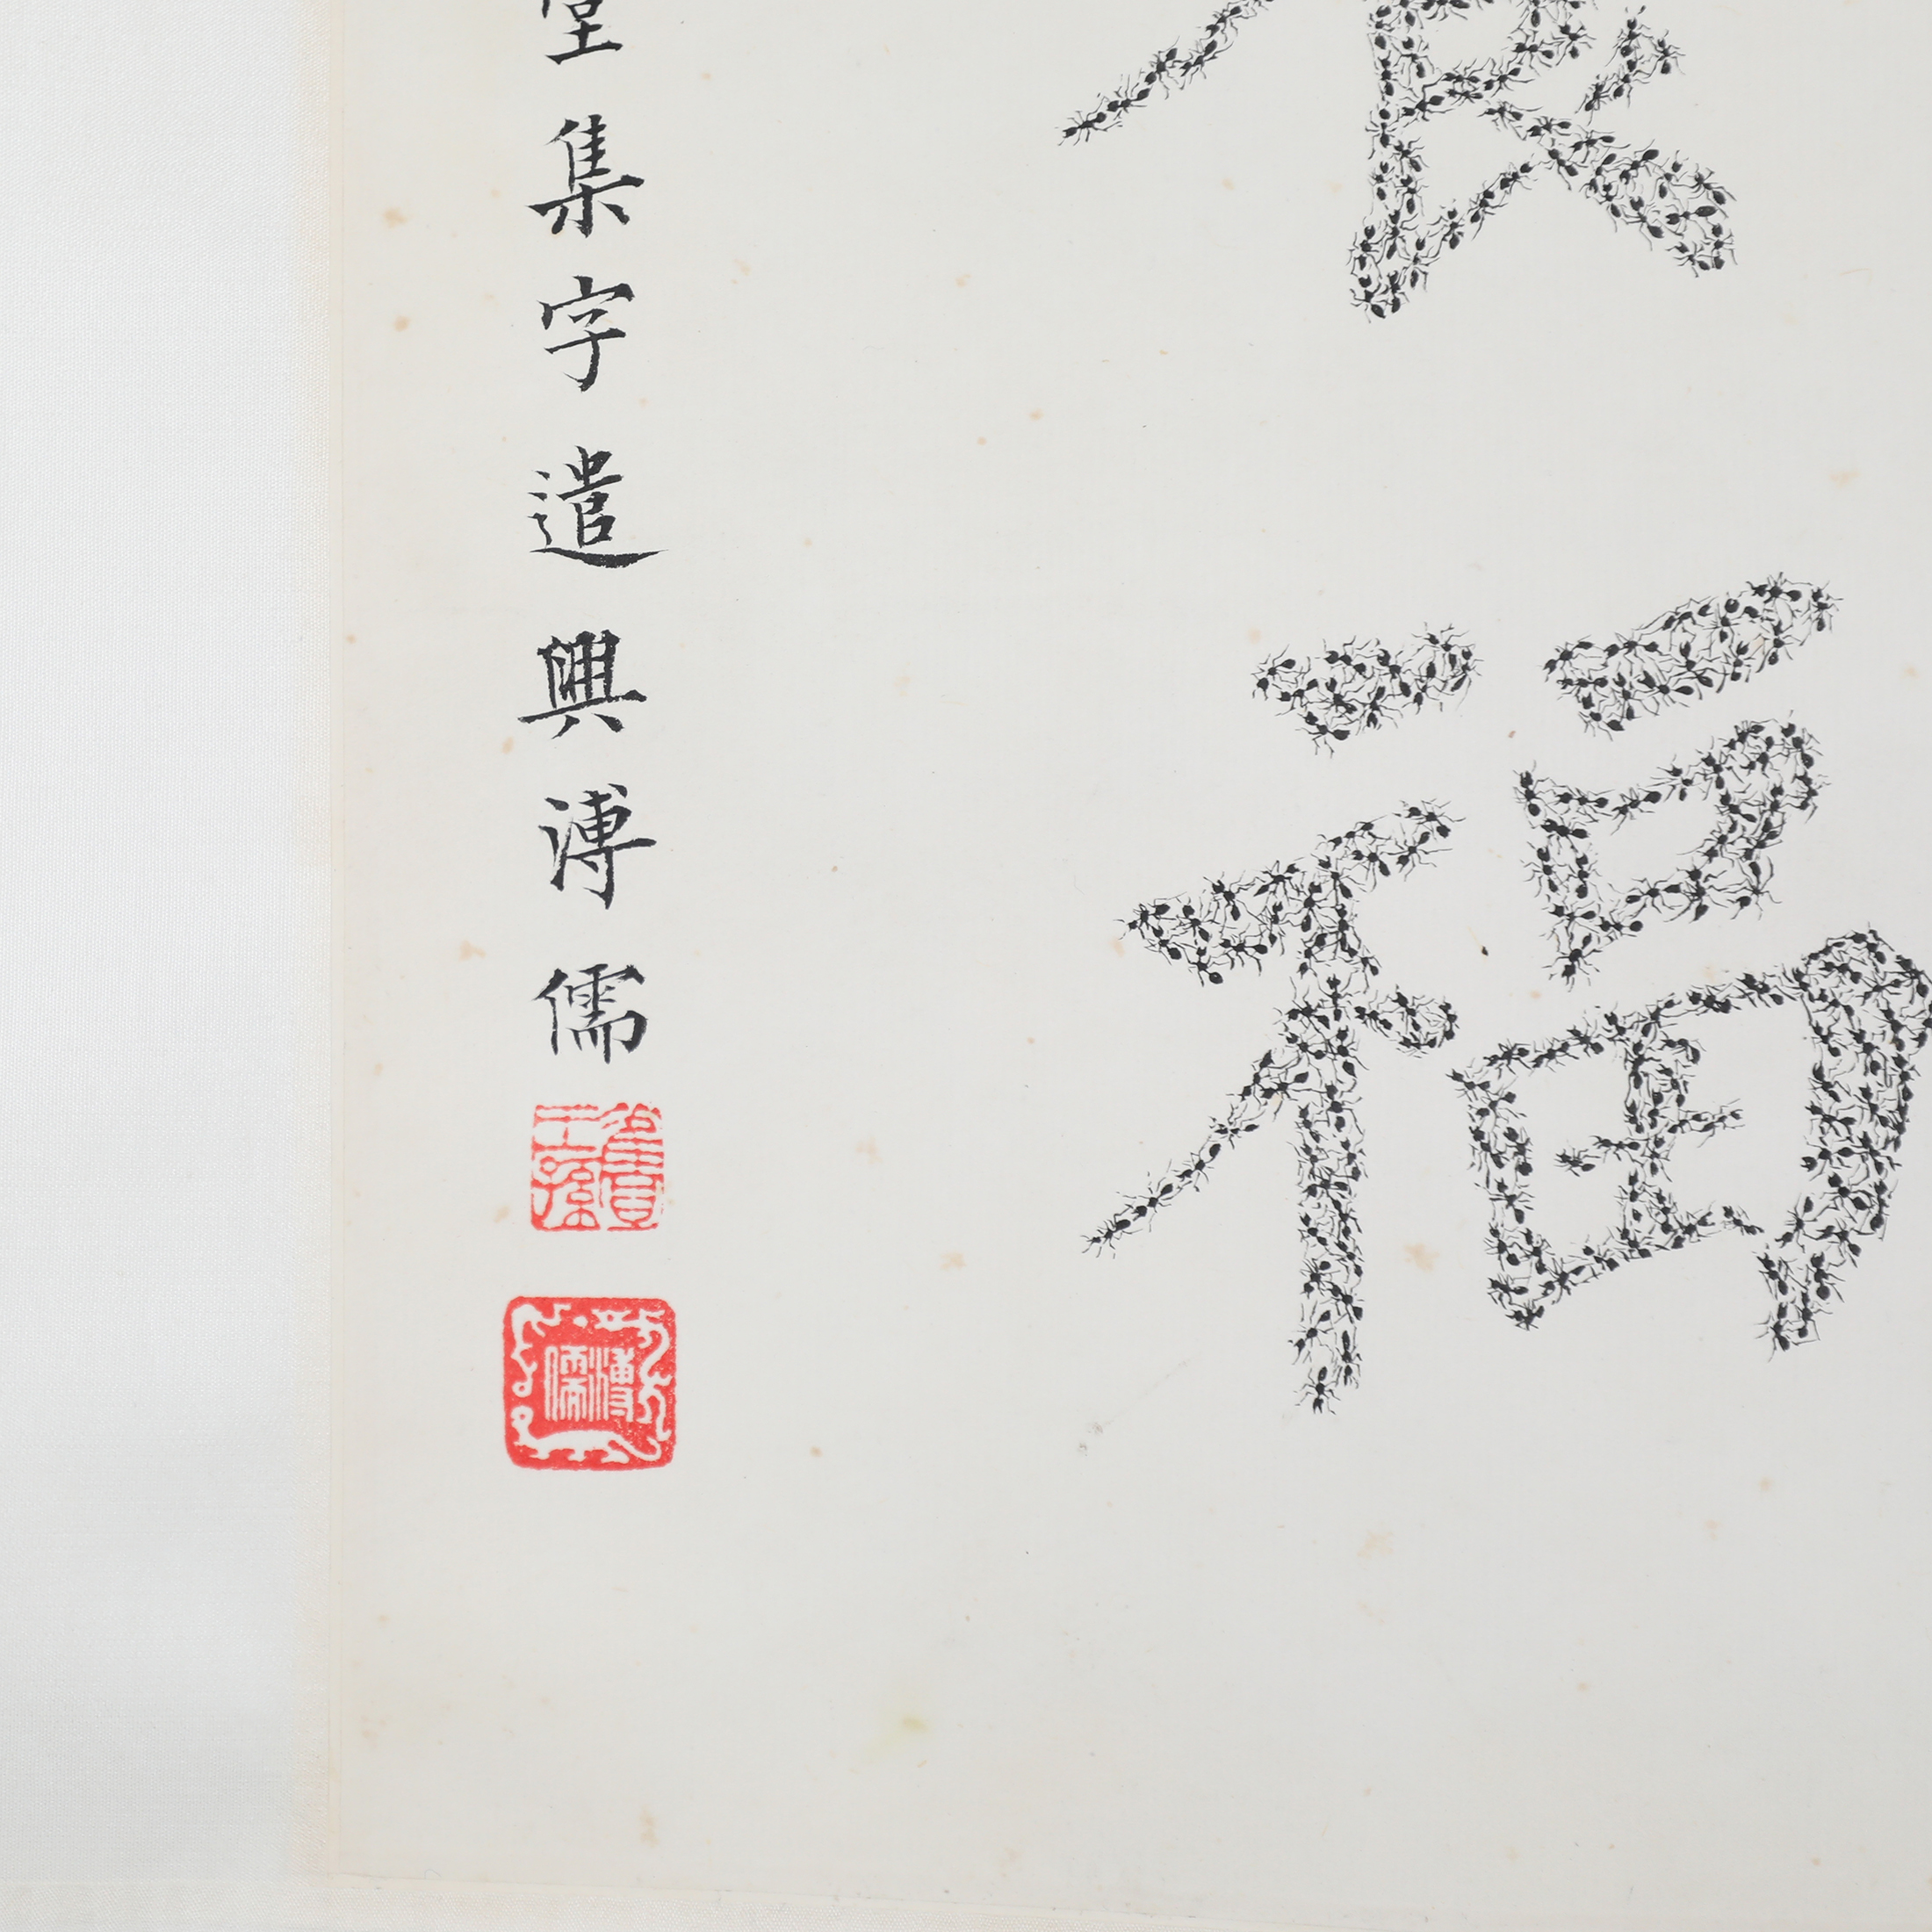 食福
堂集字遣興溥儒
舊王孫
溥儒